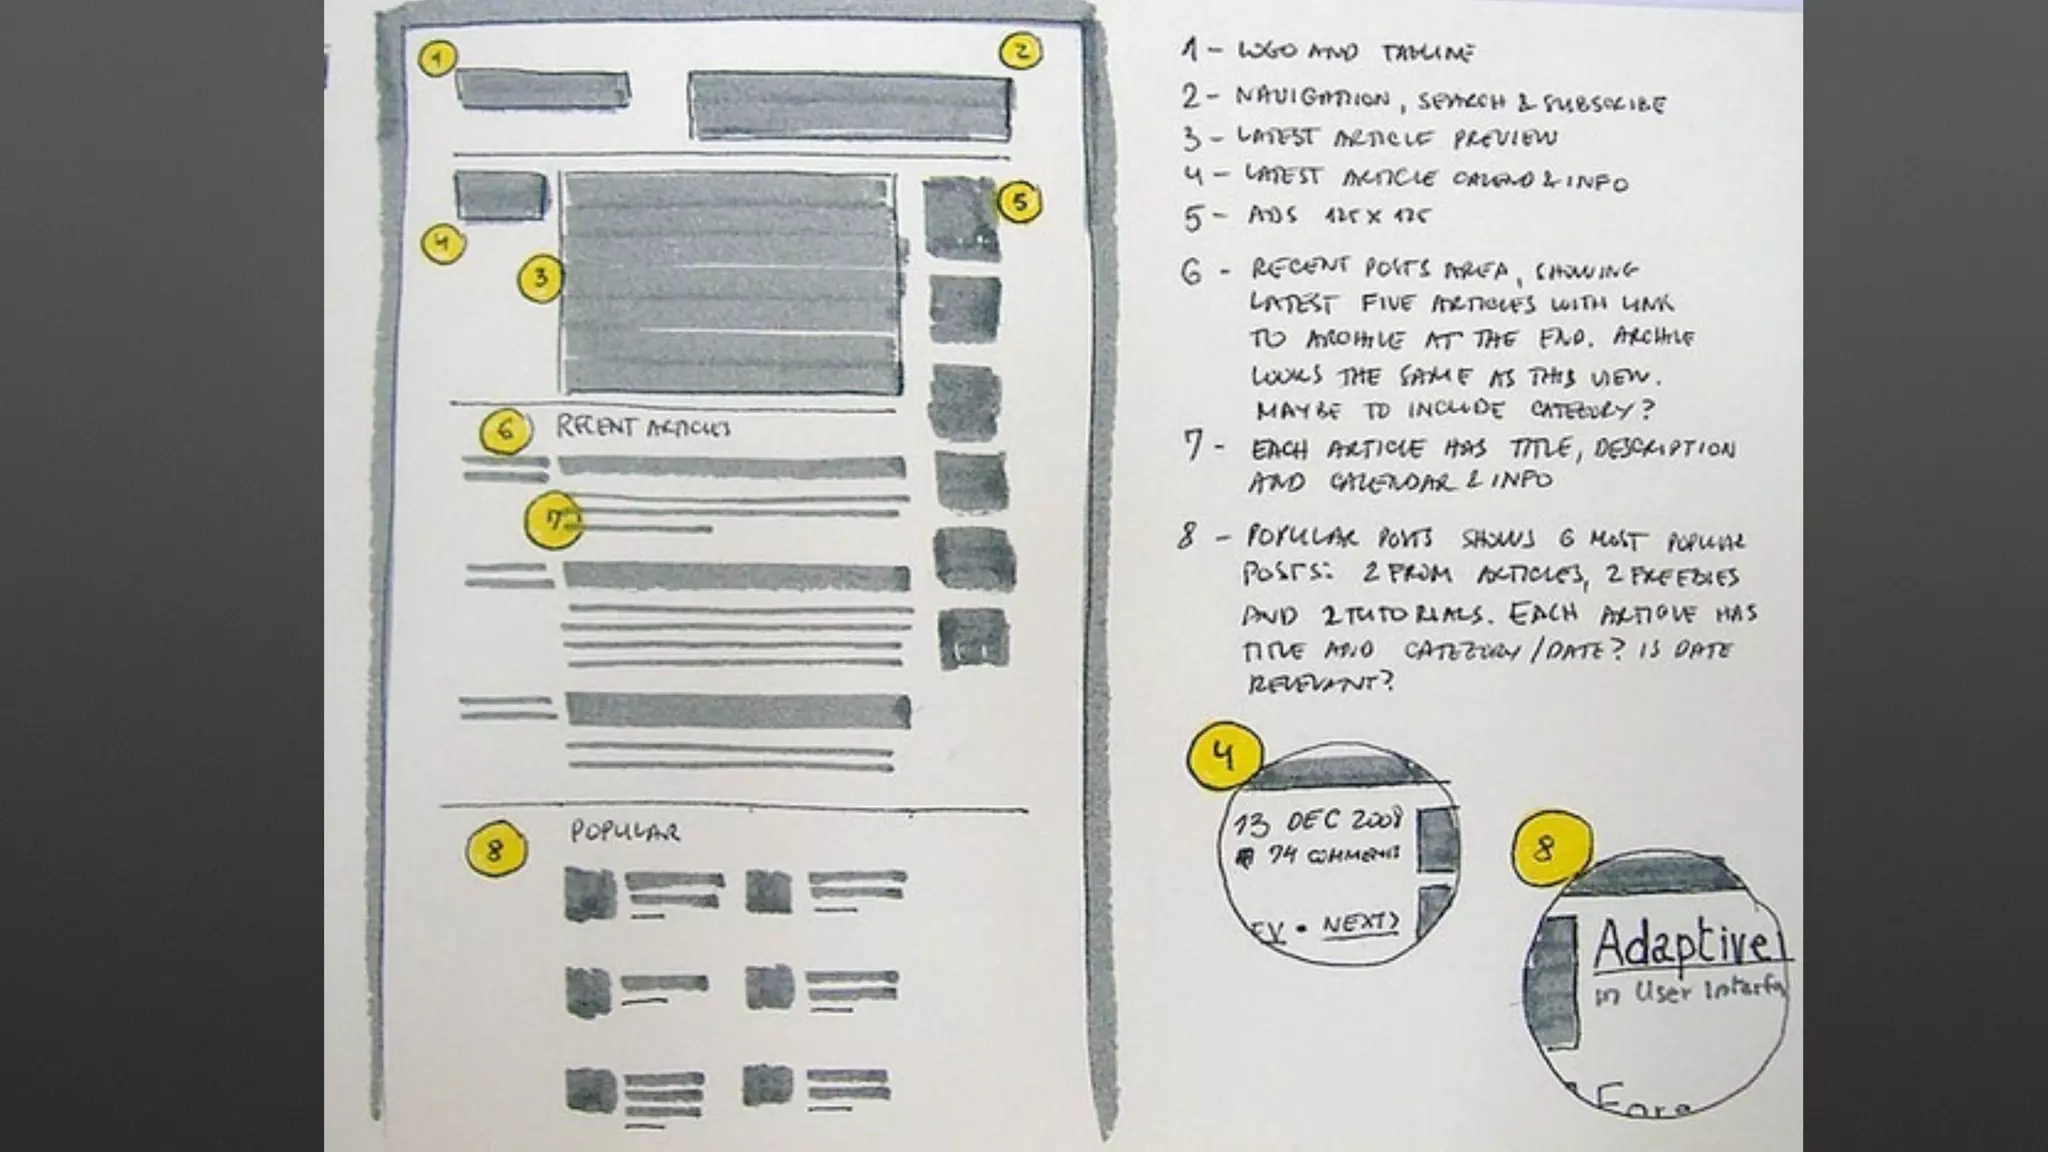 1
2
4
3
5
6 RECENT ARTICLES
7
8 POPULAR
1 - LOGO AND TAGLINE
2 - NAVIGATION, SEARCH & SUBSCRIBE
3 - LATEST ARTICLE PREVIEW
4 - LATEST ARTICLE CALEND & INFO
5 - ADS 125 X 125
6 - RECENT POSTS AREA, SHOWING
LATEST FIVE ARTICLES WITH LINK
TO ARCHIVE AT THE END. ARCHIVE
LOOKS THE SAME AS THIS VIEW.
MAYBE TO INCLUDE CATEGORY?
7 - EACH ARTICLE HAS TITLE, DESCRIPTION
AND CALENDAR & INFO
8 - POPULAR POSTS SHOWS 6 MOST POPULAR
POSTS: 2 FROM ARTICLES, 2 FREEBIES
AND 2 TUTORIALS. EACH ARTICLE HAS
TITLE AND CATEGORY/DATE? IS DATE
RELEVANT?
4
13 DEC 2008
74 COMMENTS
EV • NEXT>
8
Adaptive
in User Interfa